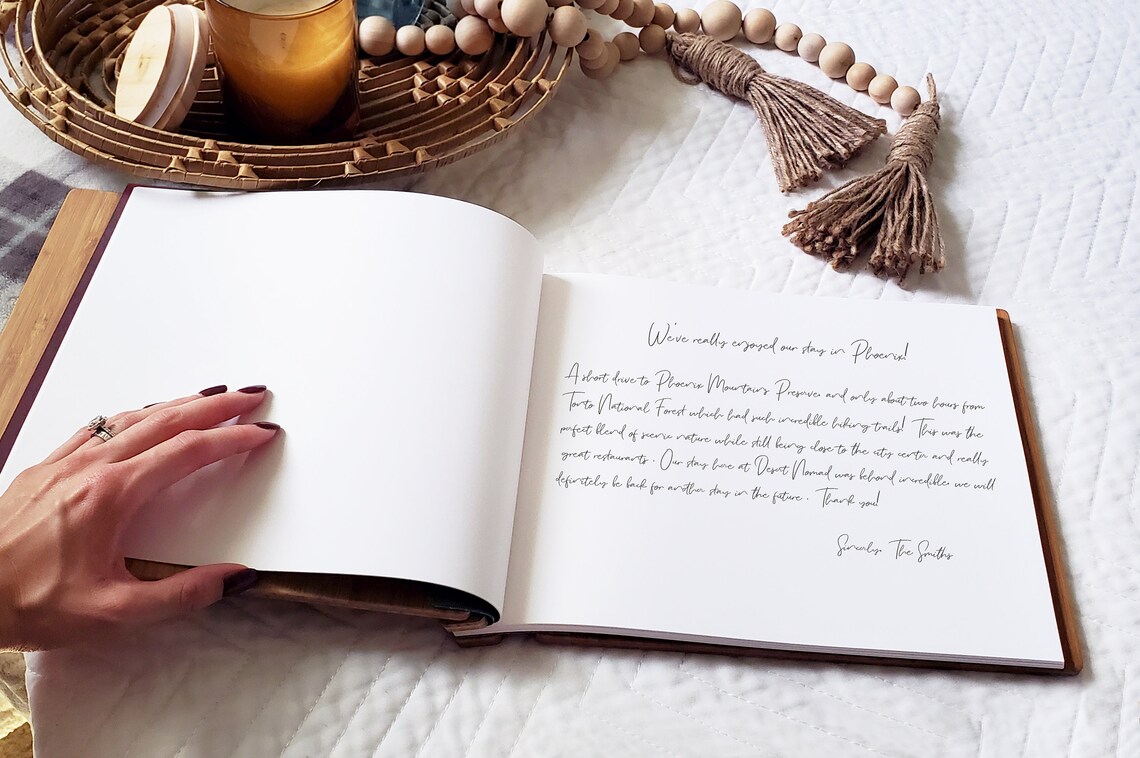 We've really enjoyed our stay in Phoenix!
A short drive to Phoenix Mountains Preserve, and only about two hours from
Tonto National Forest which had such incredible hiking trails! This was the
perfect blend of scenic nature while still being close to the city center and really
great restaurants. Our stay here at Desert Nomad was behond incredible, we will
definitely be back for another stay in the future. Thank you!
Sincerely, The Smiths